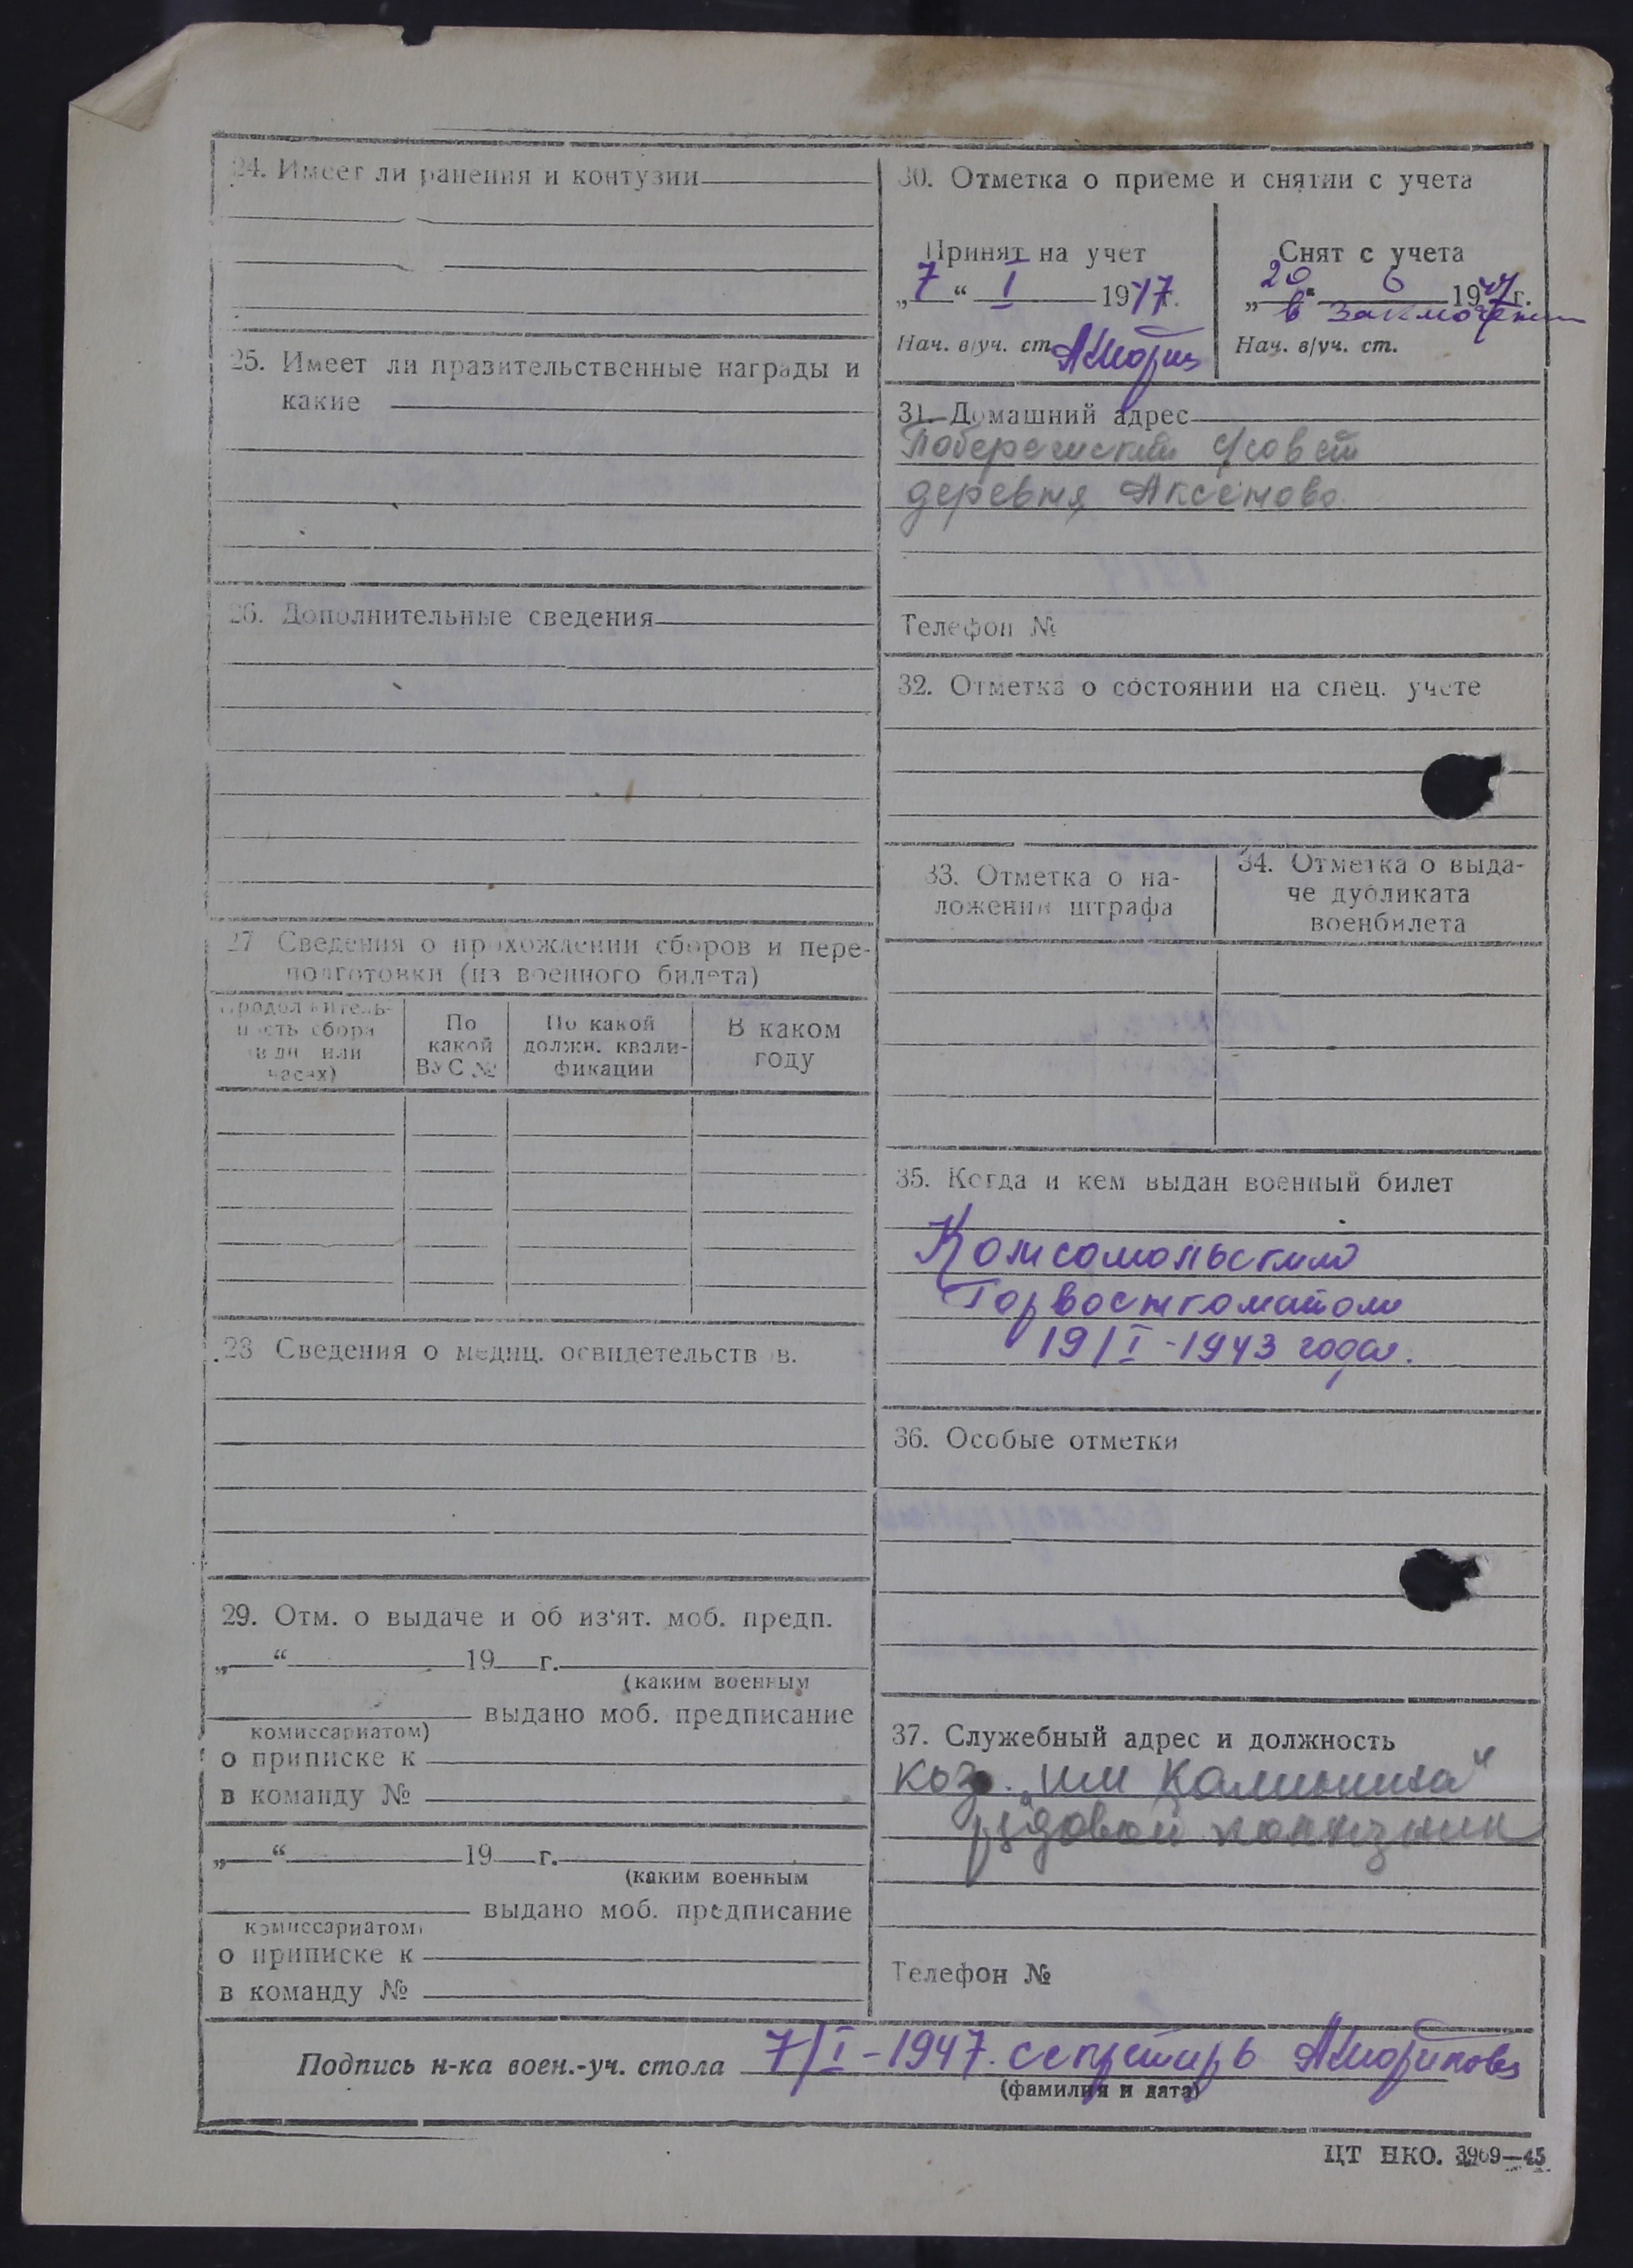 24. Имеет ли ранения и контузии
25. Имеет ли правительственные награды и
какие
26. Дополнительные сведения
27 Сведения о прохождении сборов и пере-
подготовки (из военного билета)
Продолжитель-
ность сбора
(в дн. или
часах)
По
какой
ВУС №
По какой
должн. квали-
фикации
В каком
году
28 Сведения о медиц. освидетельствов.
29. Отм. о выдаче и об из'ят. моб. предп.
„ “ 19 г.
(каким военным
выдано моб. предписание
комиссариатом)
о приписке к
в команду №
„ “ 19 г.
(каким военным
выдано моб. предписание
комиссариатом)
о приписке к
в команду №
30. Отметка о приеме и снятии с учета
Принят на учет
„7“ I 1947г.
Нач. в/уч. ст.
Снят с учета
„20“ 6 1947г.
в заключении
Нач. в/уч. ст.
31. Домашний адрес
с/совет
деревня Аксёново.
Телефон №
32. Отметка о состоянии на спец. учете
33. Отметка о на-
ложении штрафа
34. Отметка о выда-
че дубликата
военбилета
35. Когда и кем выдан военный билет
Комсомольским
Горвоенкоматом
19/I-1943 года.
36. Особые отметки
37. Служебный адрес и должность
„им Калинина“
рядовой колхозник
Телефон №
Подпись н-ка воен.-уч. стола 7/I-1947. секретарь
(фамилия и дата)
ЦТ НКО. 3969—45